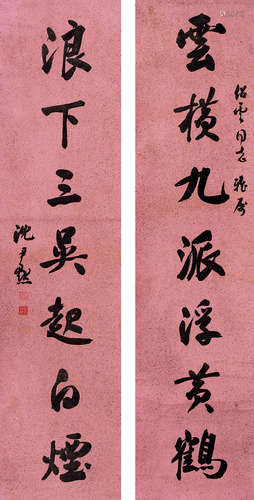 雲橫九派浮黃鶴
紹雲同志雅屬
浪下三吳起白煙
沈尹默